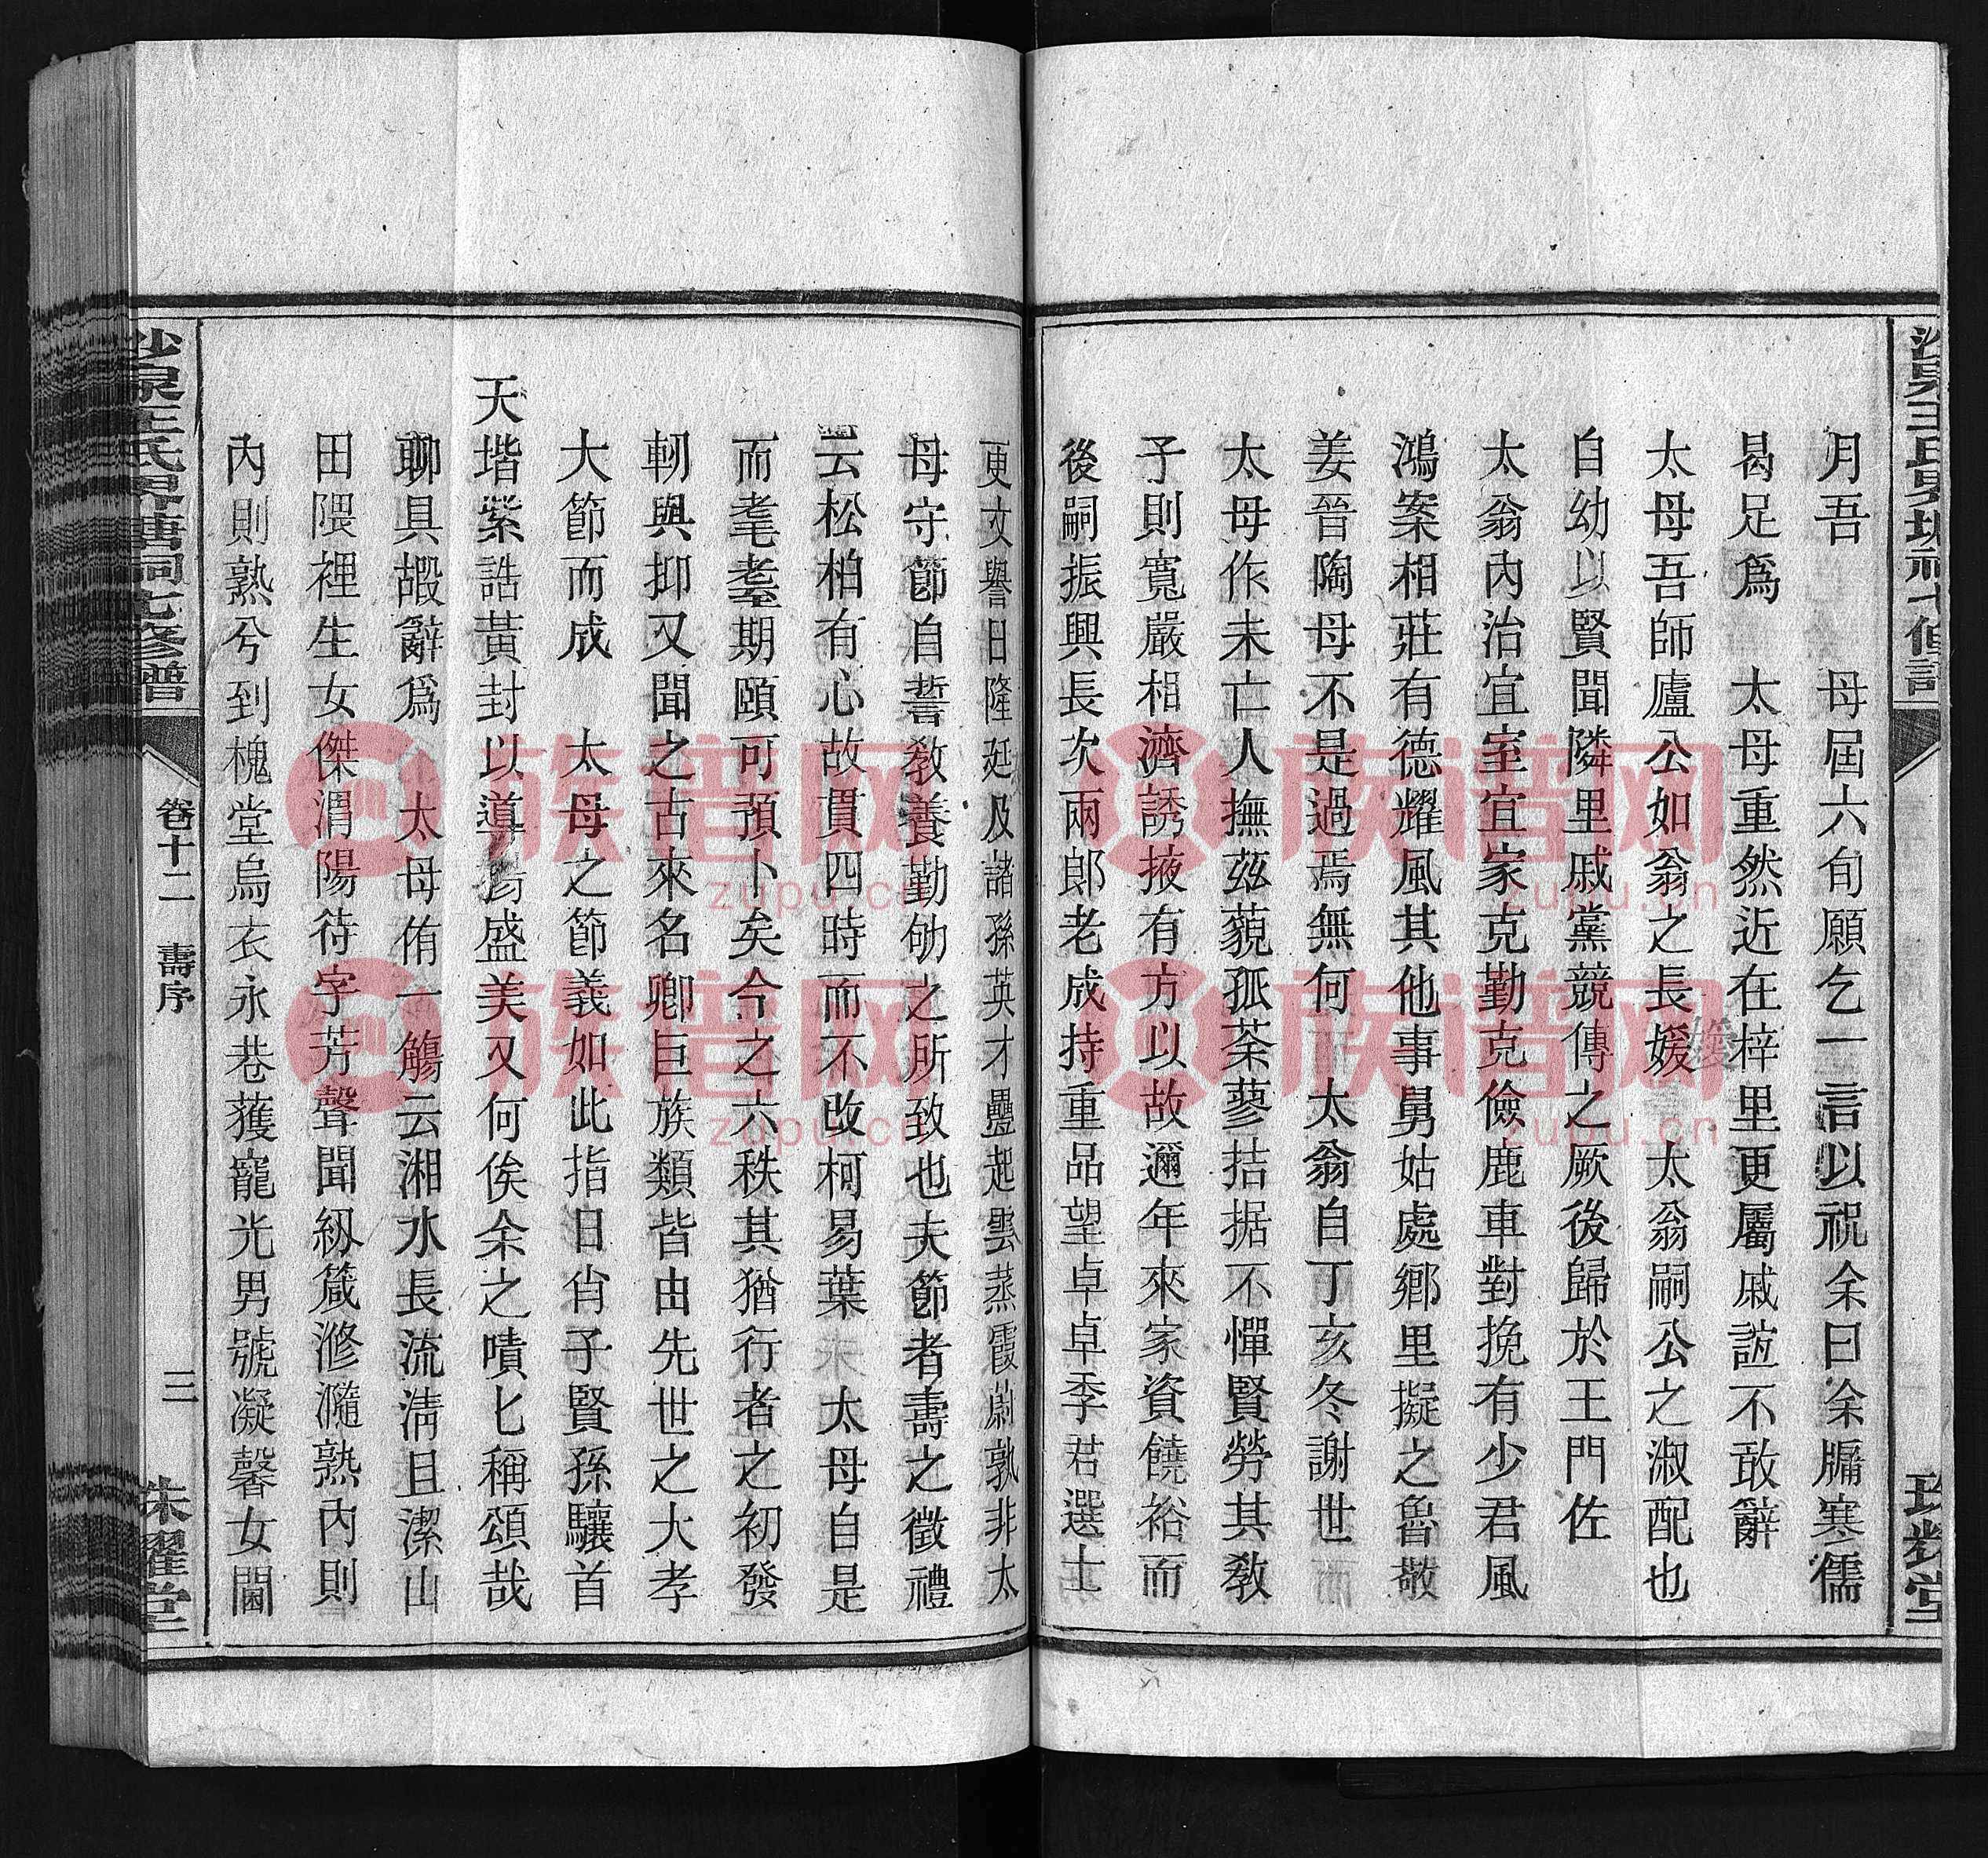 月吾　母屆六旬願乞一言以祝余曰余牖寒儒
曷足爲　太母重然近在梓里更屬戚誼不敢辭
太母吾師廬公如翁之長媛　太翁嗣公之淑配也
自幼以賢聞隣里戚黨競傳之厥後歸於王門佐
太翁內治宜室宜家克勤克儉鹿車對挽有少君風
鴻案相莊有德耀風其他事舅姑處鄉里擬之魯敬
姜晉陶母不是過焉無何　太翁自丁亥冬謝世而
太母作未亡人撫茲藐孤荼蓼拮据不憚賢勞其教
子則寬嚴相濟誘掖有方以故邇年來家資饒裕而
後嗣振興長次兩郎老成持重品望卓卓季君選士
更文譽日隆廷及諸孫英才疊起雲蒸霞蔚孰非太
母守節自誓教養勤劬之所致也夫節者壽之徵禮
云松柏有心故貫四時而不改柯易葉　太母自是
而耄耋期頤可預卜矣今之六秩其猶行者之初發
軔與抑又聞之古來名卿巨族類皆由先世之大孝
大節而成　太母之節義如此指日肖子賢孫驤首
天堦紫誥黃封以導揚盛美又何俟余之嘖匕稱頌哉
聊具嘏辭爲　太母侑一觴云湘水長流淸且潔山
田隈裡生女傑渭陽待字芳聲聞紉箴滫瀡熟內則
內則熟兮到槐堂烏衣永巷蒦寵光男號凝馨女閫
沙泉王氏界塘祠七修譜
卷十二　壽序
三
珠耀堂
族谱网
zupu.cn
族谱网
zupu.cn
族谱网
zupu.cn
族谱网
zupu.cn